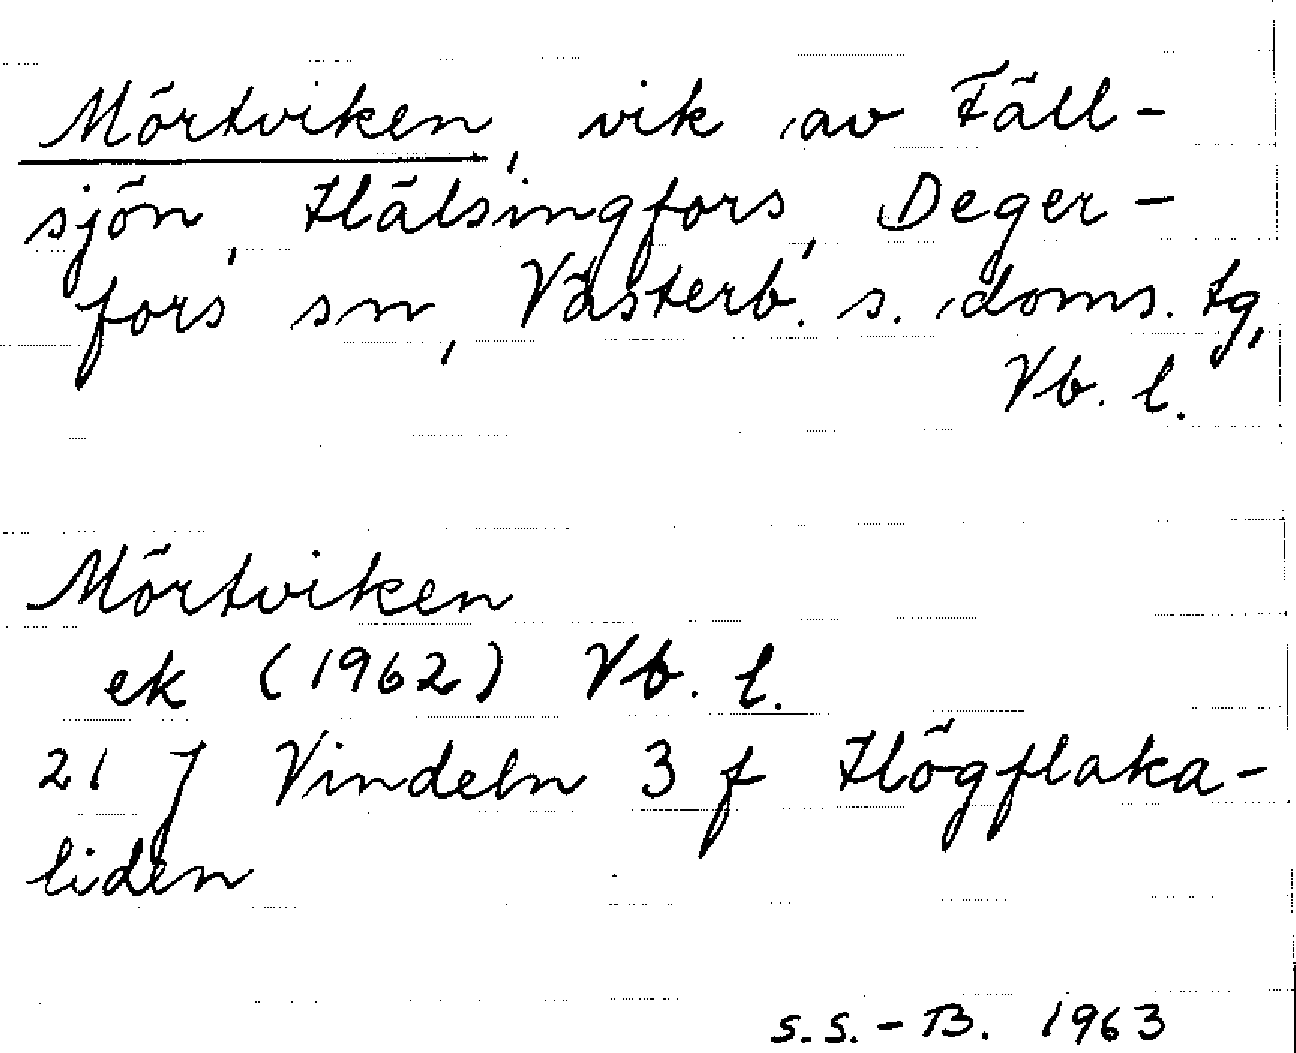 Mörtviken, vik av Fäll-
sjön, Hälsingfors, Deger-
fors sn, Västerb. s. doms. tg,
Vb. l.
Mörtviken
ek (1962) Vb. l.
21 J Vindeln 3 f Högflaka-
liden
S.S.-B. 1963